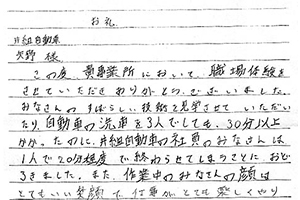 お礼
井組自動車
矢野 様
この度、貴事業所において、職場体験を
させていただきありがとうございました。
みなさんのすばらしい技術を見学させていただい
たり、自動車の洗車を3人でしても、30分以上
かかったのに、井組自動車の社員のみなさんは、
1人で20分程度で終わらせてしまうことにおど
ろきました。また、作業中のみなさんの顔は
とてもいい笑顔で、仕事がとても楽しくやり